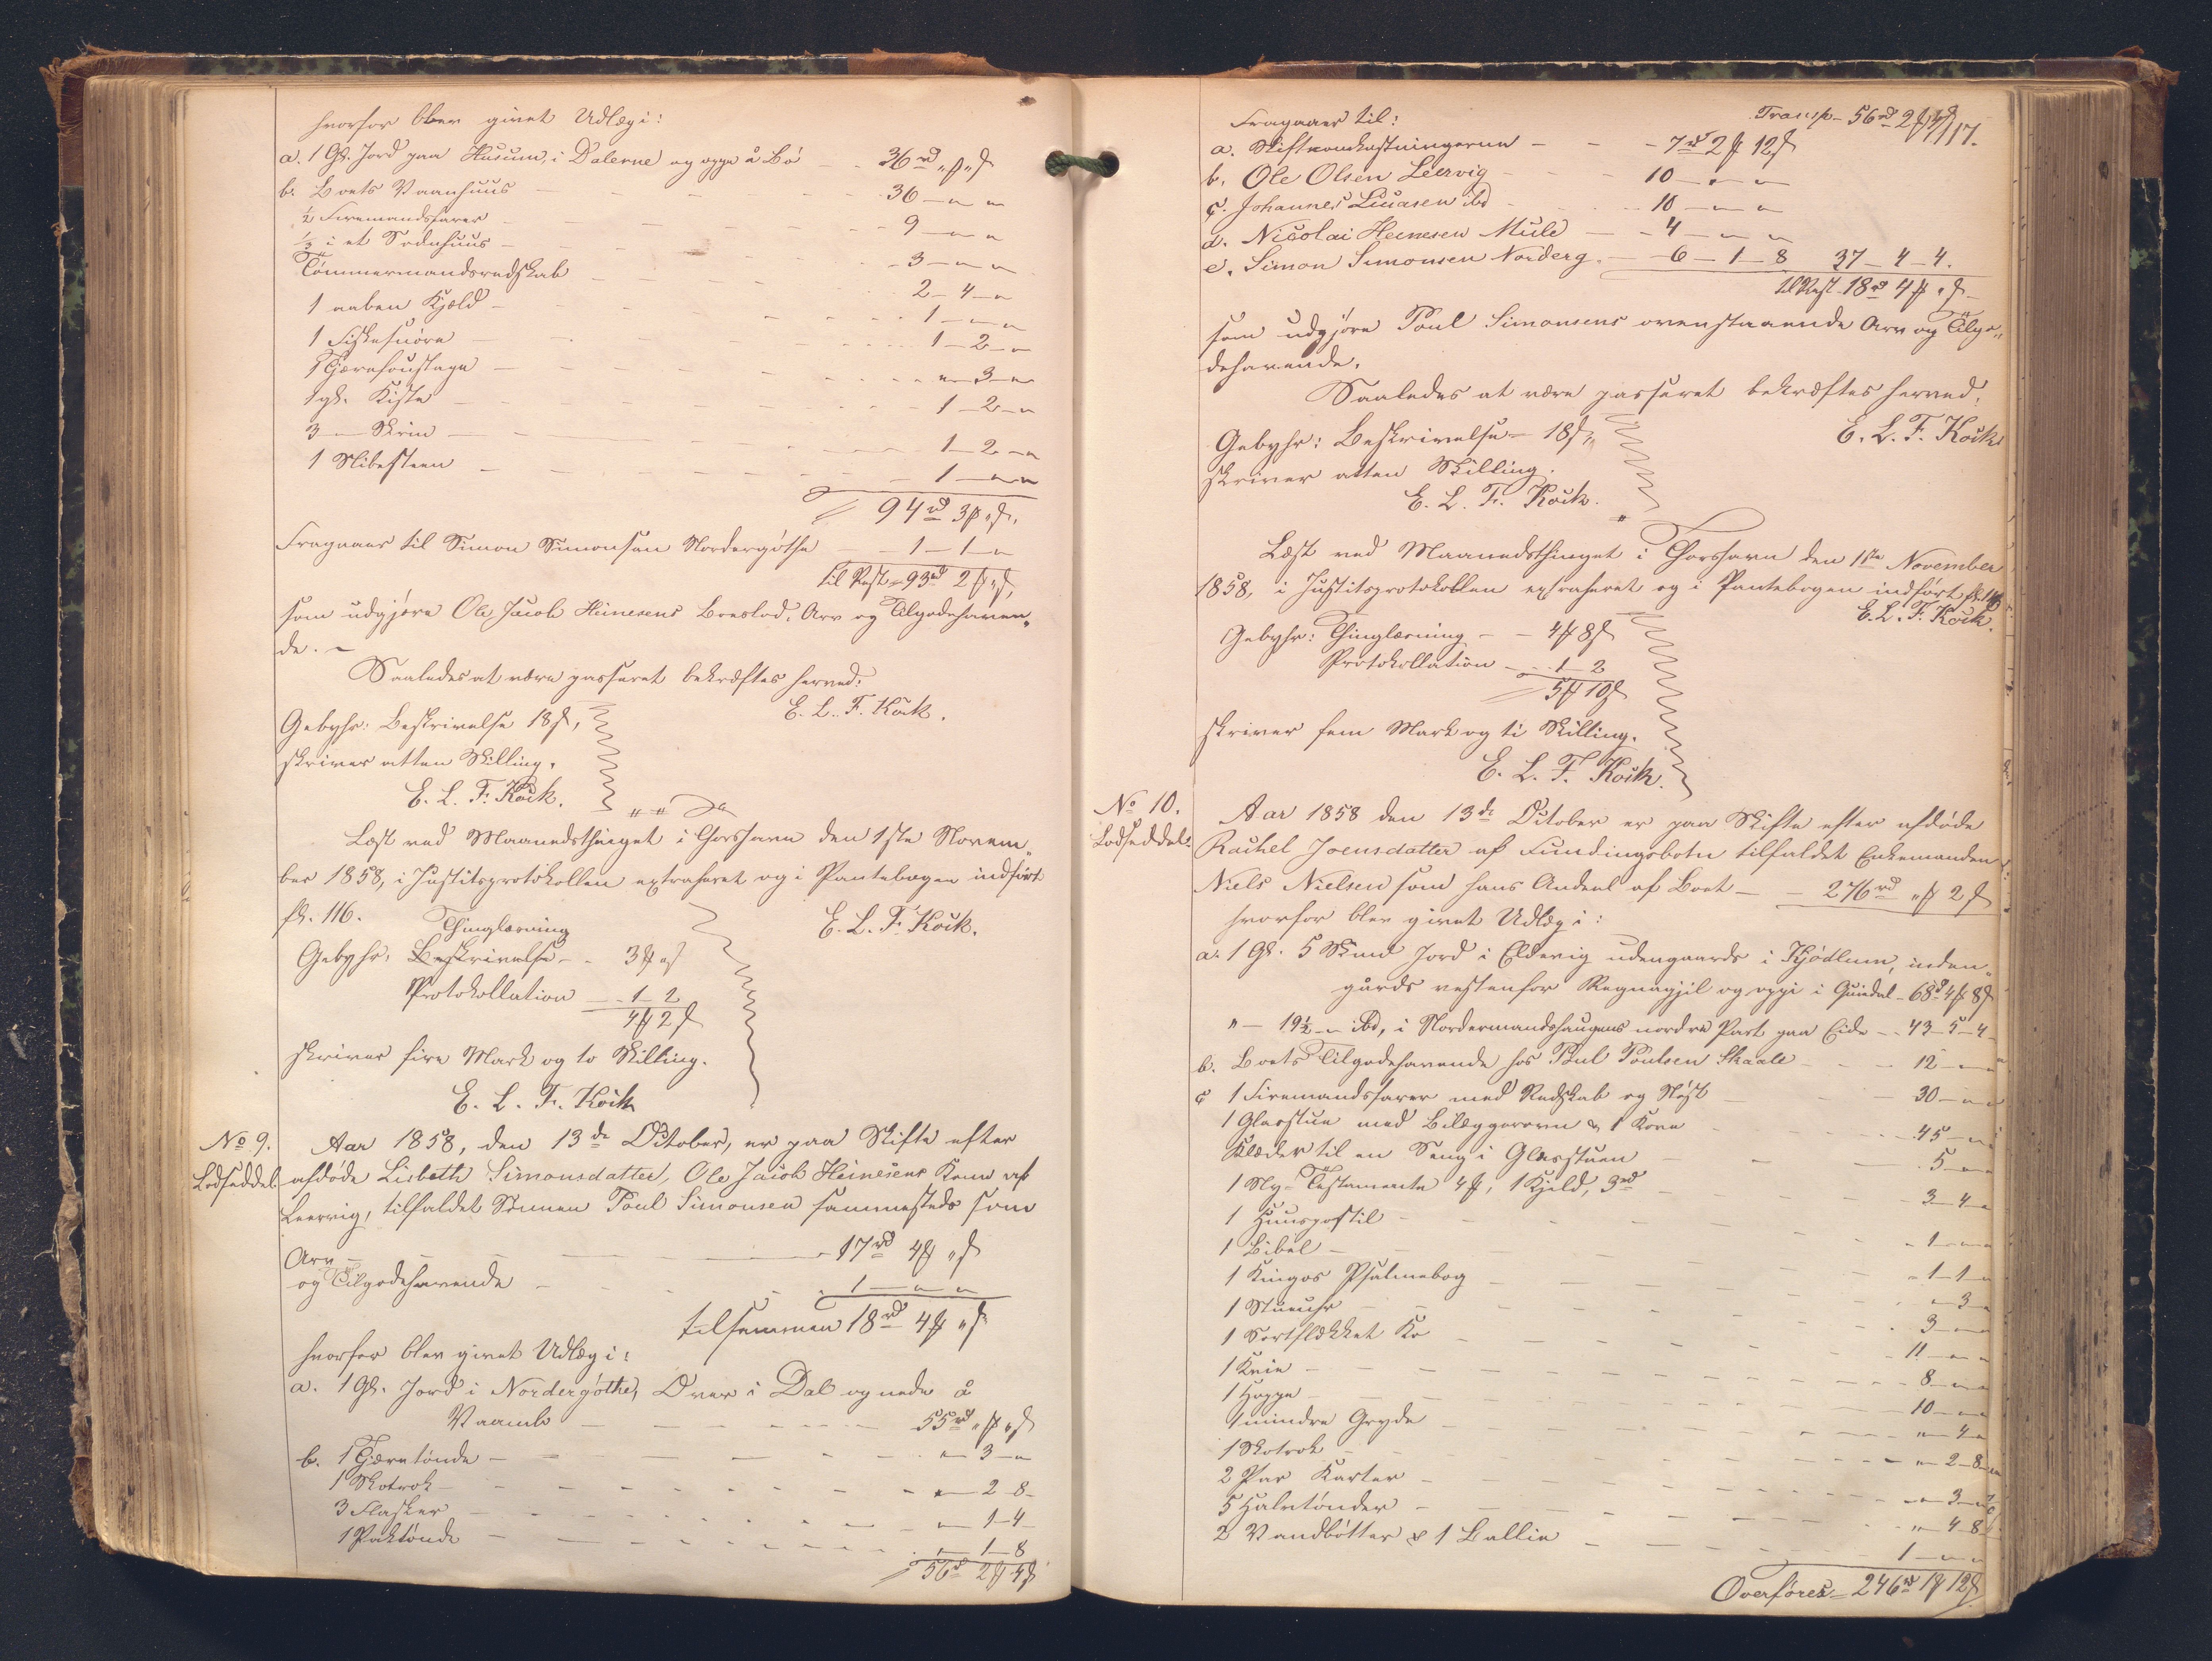 hvorfor blev givet Udlæg i:
a. 1 Gl. Jord paa Husum, i Dalerne og oppe å Bø - 36 rd „ ₰ „ ß
b. Boets Vaanhuus - 36 - „ „
½ Firemandsfarer - 9 - „ „
⅓ i et Sodnhuus - 3 - „ „
Tømmermandsredskab - 2 - 4 - „
1 aaben Kjeld - 1 - „ „
1 Fiskesnöre - 1 - 2 - „
1 Tjærefoustage - „ - 3 - „
1 gl. Kiste - 1 - 2 - „
3 - Skrin - 1 - 2 - „
1 Slibesteen - 1 - „ „
94 rd 3 ₰ „ ß
Fragaaer til Simon Simonsen Nordergöthe - 1 - 1 - „
til Rest - 93 rd 2 ₰ „ ß
som udgjøre Ole Jacob Heinesens Boeslod, Arv og Tilgodehaven„
de. -
Saaledes at være passeret bekræftes herved:
E. L. F. Kock.
Gebyhr: Beskrivelse 18 ß,
skriver atten Skilling.
E. L. F. Kock.
Læst ved Maanedsthinget i Thorshavn den 1ste Novem„
ber 1858, i Justitsprotokollen extraheret og i Pantebogen indført
fl. 116.
E. L. F. Kock.
Thinglæsning
Gebyhr: Beskrivelse - 3 ₰ „ ß
Protokollation - 1 - 2
4 ₰ 2 ß
skriver fire Mark og to Skilling.
E. L. F. Kock
No 9.
Lodseddel.
Aar 1858, den 13de October, er paa Skifte efter
afdøde Lisbeth Simonsdatter, Ole Jacob Heinesens Kone af
Leervig, tilfaldet Sønnen Poul Simonsen sammesteds som
Arv - 17 rd 4 ₰ „ ß
og Tilgodehavende - 1 - „ „
tilsammen 18 rd 4 ₰ „ ß
hvorfor blev givet Udlæg i:
a. 1 Gl. Jord i Nordergöthe, Över i Dal og nede å
Vaamb - 55 rd „ ₰ „ ß
b. 1 Tjæretønde - „ - 3 - „
1 Skotrok - „ - 2 - 8
3 Flasker - „ - 1 - 4
1 Paktønde - „ - 1 - 8
56 rd 2 ₰ 4 ß
117.
Transp - 56 rd 2 ₰ 4 ß
Fragaaer til:
a. Skifteomkostningerne - 7 rd 2 ₰ 12 ß
b. Ole Olsen Leervig - 10 - „ „
c. Johannes Lucasen ibd - 10 - „ „
d. Nicolai Heinesen Mule - 4 - „ „
e. Simon Simonsen Norderg. - 6 - 1 - 8 37 - 4 - 4.
til Rest - 18 rd 4 ₰ „ ß
som udgjøre Poul Simonsens ovenstaaende Arv og Tilgo„
dehavende.
Saaledes at være passeret bekræftes herved.
E. L. F. Kock
Gebyhr: Beskrivelse - 18 ß,
skriver atten Skilling.
E. L. F. Kock.
Læst ved Maanedsthinget i Thorshavn den 1ste November
1858, i Justitsprotokollen extraheret og i Pantebogen indført fl. 116
E. L. F. Kock.
Gebyhr: Thinglæsning - 4 ₰ 8 ß
Protokollation - 1 - 2
5 ₰ 10 ß
skriver fem Mark og ti Skilling.
E. L. F. Kock.
No 10.
Lodseddel.
Aar 1858 den 13de October er paa Skifte efter afdøde
Rachel Joensdatter af Fundingsbotn tilfaldet Enkemanden
Niels Nielsen som hans Andeel af Boet - 276 rd „ ₰ 2 ß
hvorfor blev givet Udlæg i:
a. 1 Gl. 5 Skind Jord i Eldevig udengaards i Kjødlum, inden„
gårds vestenfor Regnagjil og oppe i Guindal - 68 rd 4 ₰ 8 ß
„ - 19½ - „ ibd, i Nordermandshaugens nordre Part paa Eide - 43 - 5 - 4
b. Boets Tilgodehavende hos Poul Poulsen Skaale - 12 - „ „
c. 1 Firemandsfarer med Redskab og Nøst - 30 - „ „
1 Glasstue med Bilæggerovn & 1 Kove - 45 - „ „
Klæder til en Seng i Glasstuen - 5 - „ „
1 Ny-Testamente 4 ₰, 1 Kjeld, 3 rd - 3 - 4 - „
1 Huuspostil - 1 - „ „
1 Bibel - 1 - 1 - „
1 Kingos Psalmebog - „ - 3 - „
1 Stueuhr - 3 - „ „
1 Sortflekket Ko - 11 - „ „
1 Kvie - 8 - „ „
1 Hoppe - 10 - „ „
1 mindre Gryde - „ - 4 - „
1 Skotrok - „ - 2 - 8
2 Par Karter - „ - 3 - „
5 Halvtønder - „ - 4 - 8
2 Vandbøtter & 1 Ballie - 1 - „ „
Overføres - 246 rd 1 ₰ 12 ß